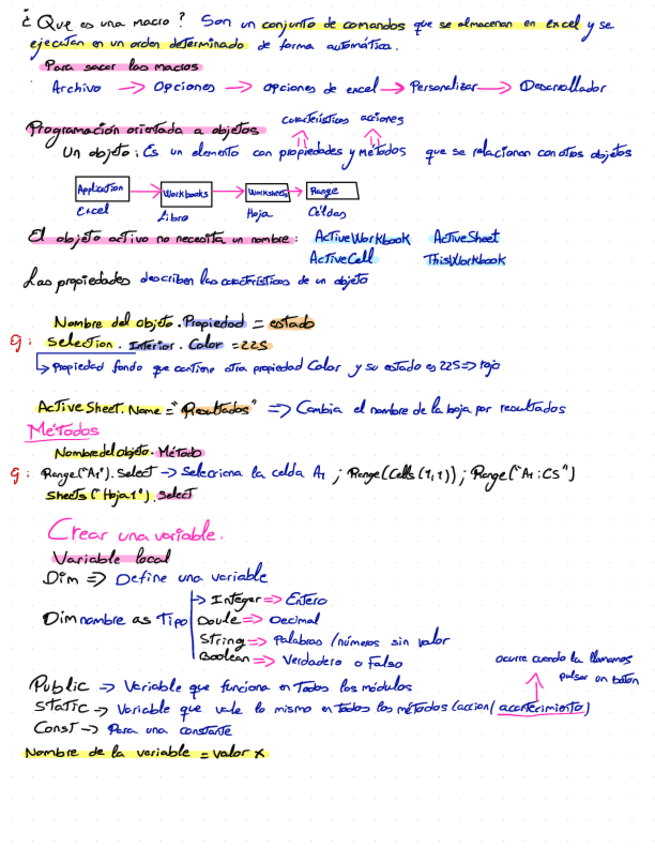 ¿Que es una macro? Son un conjunto de comandos que se almacenan en excel y se
ejecutan en un orden determinado de forma automática.
Para sacar las macros
Archivo → Opciones → opciones de excel → Personalizar → Desarrollador
características acciones
Programación orientada a objetos
Un objeto: Es un elemento con propiedades y métodos que se relacionan con otros objetos
Application → Workbooks → Worksheets → Range
Excel Libro Hoja Celdas
El objeto activo no necesita un nombre: ActiveWorkbook ActiveSheet
ActiveCell ThisWorkbook
Las propiedades describen las características de un objeto
Nombre del objeto.Propiedad = estado
Selection. Interior. Color = 225
↳ Propiedad fondo que contiene otra propiedad Color y su estado es 225 => rojo
ActiveSheet.Name = "Resultados" => Cambia el nombre de la hoja por resultados
Métodos
Nombre del objeto. Método
Range("A1").Select → Selecciona la celda A1 ; Range(Cells(1,1)) ; Range("A1:C5")
Sheets("Hoja1").Select
Crear una variable.
Variable local
Dim => Define una variable
→ Integer => Entero
Dim nombre as Tipo Doule => Decimal
String => Palabras / números sin valor
Boolean => Verdadero o Falso
ocurre cuando la llamamos
pulsar un botón
Public → Variable que funciona en todos los módulos
Static → Variable que vale lo mismo en todos los métodos (accion/ acontecimiento)
Const → Para una constante
Nombre de la variable = valor x